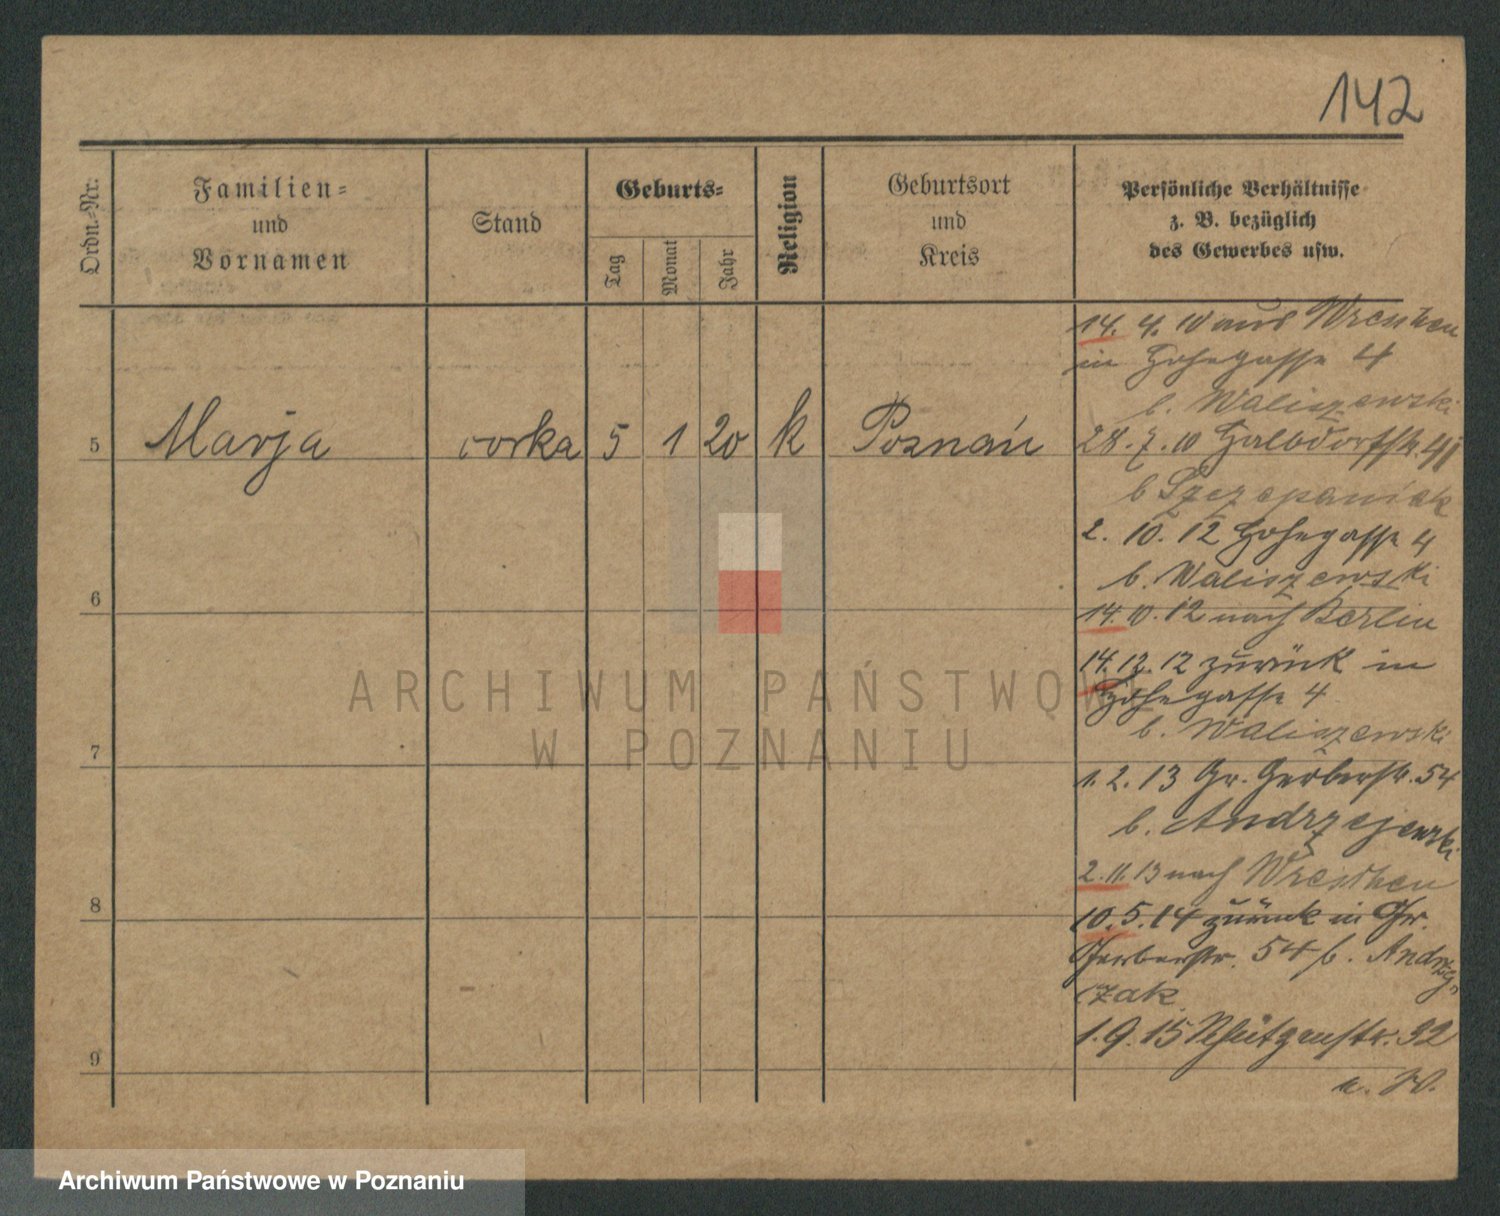 142
Ordn.-Nr.
Familien=
und
Vornamen
Stand
Geburts=
Tag
Monat
Jahr
Religion
Geburtsort
und
Kreis
Persönliche Verhältnisse
z. B. bezüglich
des Gewerbes usw.
5 Marja corka 5 1 20 k Poznań
6
7
8
9
14. 4. 10 aus Wreschen
in Hohegasse 4
b. Waliszewski
28. 7. 10 Halbdorfstr.
b Szczepaniak
2. 10. 12 Hohegasse 4
b. Waliszewski
14. 10. 12 nach Berlin
14. 12. 12 zurück in
Hohegasse 4
b. Waliszewski
1. 2. 13 Gr. Gerberstr. 54
b. Andrzejewski
2. 11. 13 nach Wreschen
10. 5. 14 zurück in Gr.
Gerberstr. 54 b. Andrzy
czak
1. 9. 15 Schützenstr. 32
ARCHIWUM PAŃSTWOWE
W POZNANIU
Archiwum Państwowe w Poznaniu